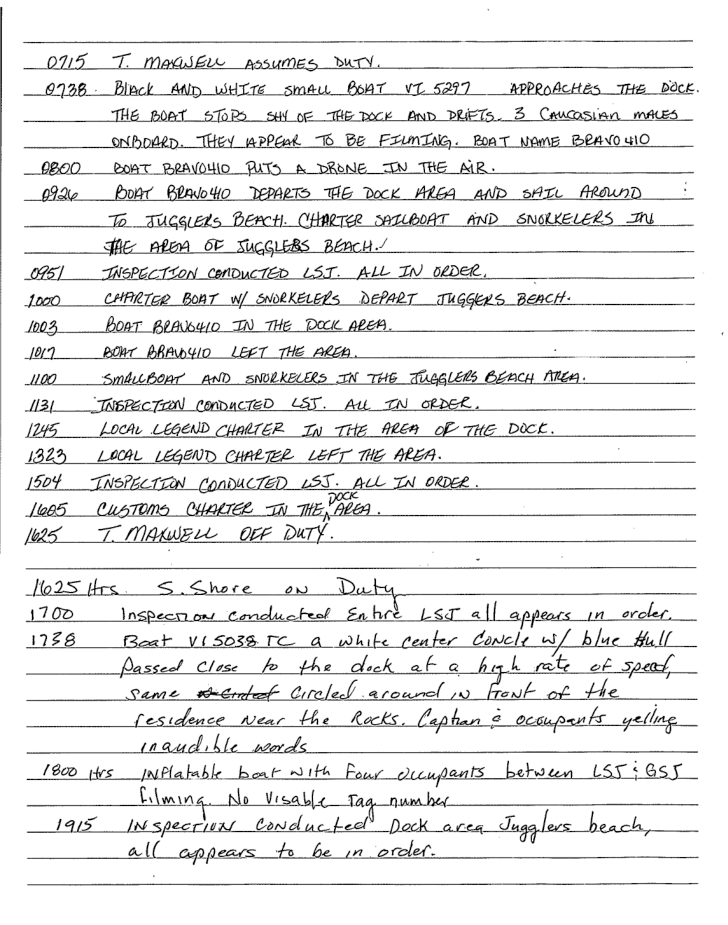 0715 T. MAXWELL ASSUMES DUTY.
0738. BLACK AND WHITE SMALL BOAT VI 5297 APPROACHES THE DOCK.
THE BOAT STOPS SHY OF THE DOCK AND DRIFTS. 3 CAUCASIAN MALES
ONBOARD. THEY APPEAR TO BE FILMING. BOAT NAME BRAVO 410
0800 BOAT BRAVO410 PUTS A DRONE IN THE AIR.
0926 BOAT BRAVO410 DEPARTS THE DOCK AREA AND SAIL AROUND
TO JUGGLERS BEACH. CHARTER SAILBOAT AND SNORKELERS IN
THE AREA OF JUGGLERS BEACH.
0951 INSPECTION CONDUCTED LSJ. ALL IN ORDER.
1000 CHARTER BOAT W/ SNORKELERS DEPART JUGGERS BEACH.
1003 BOAT BRAVO410 IN THE DOCK AREA.
1017 BOAT BRAVO410 LEFT THE AREA.
1100 SMALLBOAT AND SNORKELERS IN THE JUGGLERS BEACH AREA.
1131 INSPECTION CONDUCTED LSJ. ALL IN ORDER.
1245 LOCAL LEGEND CHARTER IN THE AREA OF THE DOCK.
1323 LOCAL LEGEND CHARTER LEFT THE AREA.
1504 INSPECTION CONDUCTED LSJ. ALL IN ORDER.
1605 CUSTOMS CHARTER IN THE DOCK AREA.
1625 T. MAXWELL OFF DUTY.
1625 Hrs S. Shore on Duty
1700 Inspection conducted Entire LSJ all appears in order.
1738 Boat VI 5038 TC a white center Concle w/ blue Hull
passed close to the dock at a high rate of speed,
same circled around in front of the
residence near the Rocks. Captian & occupants yelling
inaudible words
1800 Hrs INFlatable boat with Four occupants between LSJ & GSJ
filming. No Visable Tag number
1915 INspection conducted Dock area Jugglers beach,
all appears to be in order.